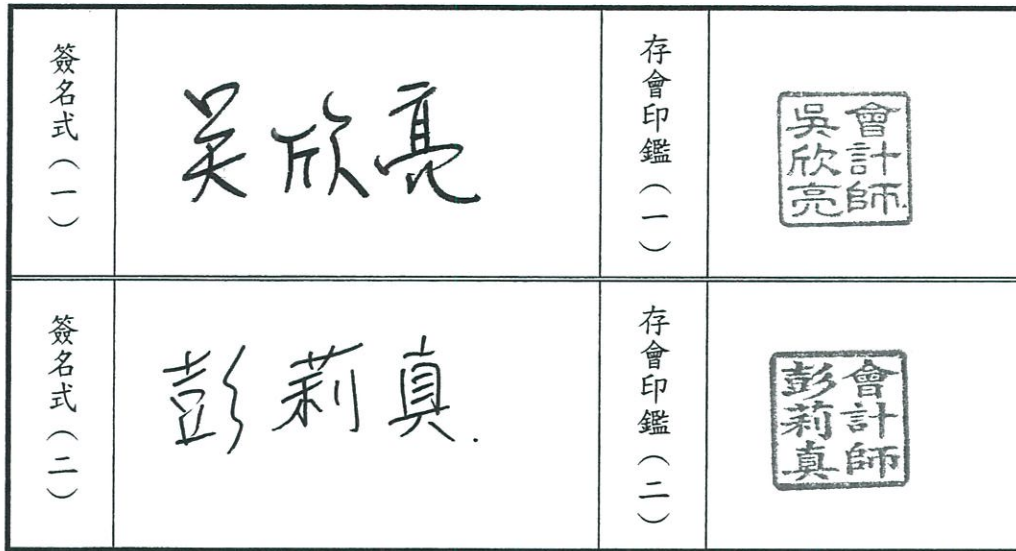 簽名式（一）
吳欣亮
存會印鑑（一）
會計師
吳欣亮
簽名式（二）
彭莉真.
存會印鑑（二）
會計師
彭莉真